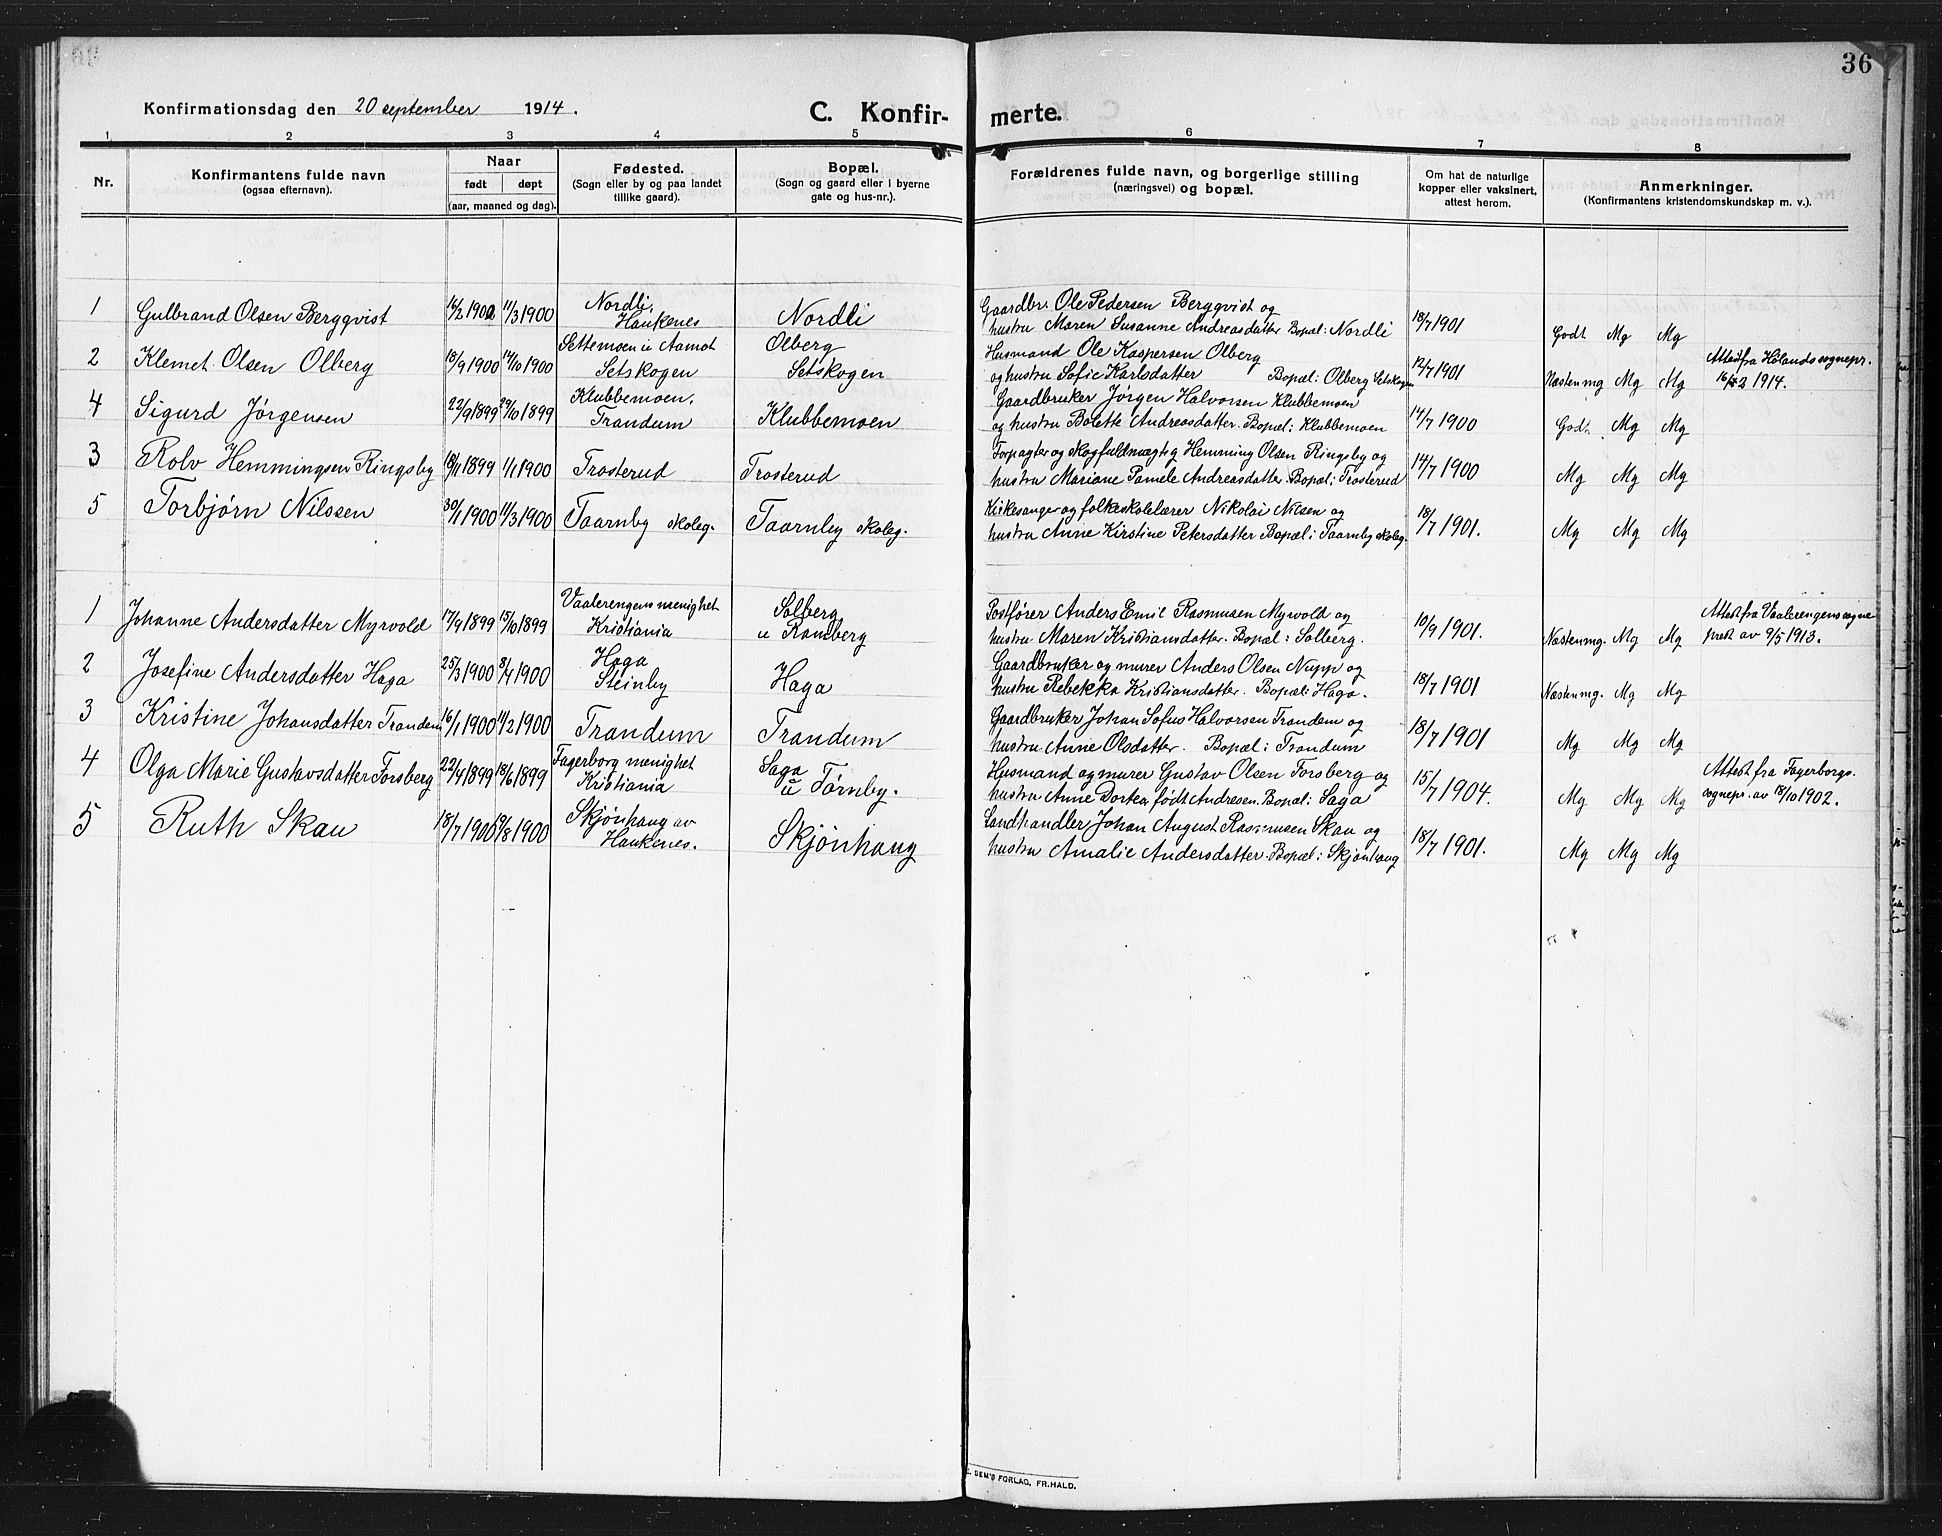 36
Konfirmationsdag den 20 september 1914.
C. Konfir-
merte.
1 2 3 4 5 6 7 8
Nr.
Konfirmantens fulde navn
(ogsaa efternavn).
Naar
født døpt
(aar, maaned og dag).
Fødested.
(Sogn eller by og paa landet
tillike gaard).
Bopæl.
(Sogn og gaard eller i byerne
gate og hus-nr.).
Forældrenes fulde navn, og borgerlige stilling
(næringsvei) og bopæl.
Om hat de naturlige
kopper eller vaksinert,
attest herom.
Anmerkninger.
(Konfirmantens kristendomskundskap m. v.).
1 Gulbrand Olsen Bergqvist 16/2 1900 11/3 1900 Nordli, Haukenes Nordli Gaardbr. Ole Pedersen Bergqvist og
hustru Maren Susanne Andreasdatter Bopæl: Nordli 18/7 1901 Godt Mg Mg
2 Klemet Olsen Olberg 18/9 1900 14/10 1900 Settemoen u Aamot Setskogen Olberg Setskogen Husmand Ole Kaspersen Olberg
og hustru Sofie Karlsdatter Bopæl: Olberg Setskogen 12/7 1901 Næsten mg Mg Mg Attest fra Hølands sognepr.
1914.
4 Sigurd Jørgensen 22/9 1899 29/10 1899 Klubbemoen, Trandum Klubbemoen Gaardbruker Jørgen Halvorsen Klubbemoen
og hustru Bolette Andreasdatter. Bopæl: Klubbemoen 14/7 1900 Godt Mg Mg
3 Rolv Hemmingsen Ringsby 18/11 1899 1/1 1900 Trosterud Trosterud Forpagter og skogfuldmægtig Hemming Olsen Ringsby og
hustru Mariane Pamele Andreasdatter. Bopæl: Trosterud 14/7 1900 Mg Mg Mg
5 Torbjørn Nilssen 30/1 1900 11/3 1900 Taarnby skoleg. Taarnby skoleg. Kirkesanger og folkeskolelærer Nikolai Nilsen og
hustru Anne Kirstine Petersdatter Bopæl: Taarnby skoleg. 18/7 1901. Mg Mg Mg
1 Johanne Andersdatter Myrvold 17/9 1899 15/10 1899 Vaalerengens menighet Kristiania Solberg u Ramberg Postfører Anders Emil Rasmusen Myrvold og
hustru Maren Kristiansdatter. Bopæl: Solberg. 10/9 1901. Næsten mg. Mg Mg Attest fra Vaalerengens sogne
prest av 9/5 1913.
2 Josefine Andersdatter Haga 25/3 1900 8/4 1900 Haga Steinby Haga Gaardbruker og murer Anders Olsen Nupp og
hustru Rebekka Kristiansdatter. Bopæl: Haga. 18/7 1901 Næsten mg. Mg Mg
3 Kristine Johansdatter Trandem 16/1 1900 11/2 1900 Trandum Trandum Gaardbruker Johan Sofus Halvorsen Trandem og
hustru Anne Olsdatter. Bopæl: Trandum 18/7 1901 Mg Mg Mg
4 Olga Marie Gustavsdatter Forsberg 22/4 1899 18/6 1899 Fagerborg menighet Kristiania Saga u Tørnby. Husmand og murer Gustav Olsen Forsberg og
hustru Anne Dortea født Andresen. Bopæl: Saga 15/7 1904. Mg Mg Mg Attest fra Fagerborgs.
sognepr. av 18/10 1902.
5 Ruth Skau 18/7 1900 19/8 1900 Skjønhaug av Haukenes. Skjønhaug Landhandler Johan August Rasmusen Skau og
hustru Amalie Andersdatter. Bopæl: Skjønhaug 18/7 1901. Mg Mg Mg
SEM'S FORLAG, FR.HALD.